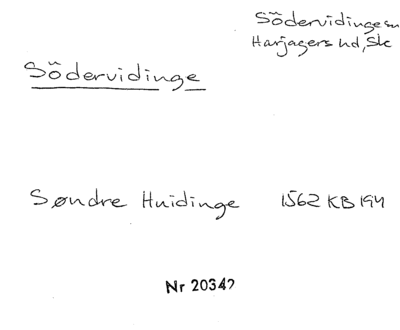 Södervidinge sn
Harjagers hd, Sk
Södervidinge
Søndre Huidinge 1562 KB 194
Nr 20342